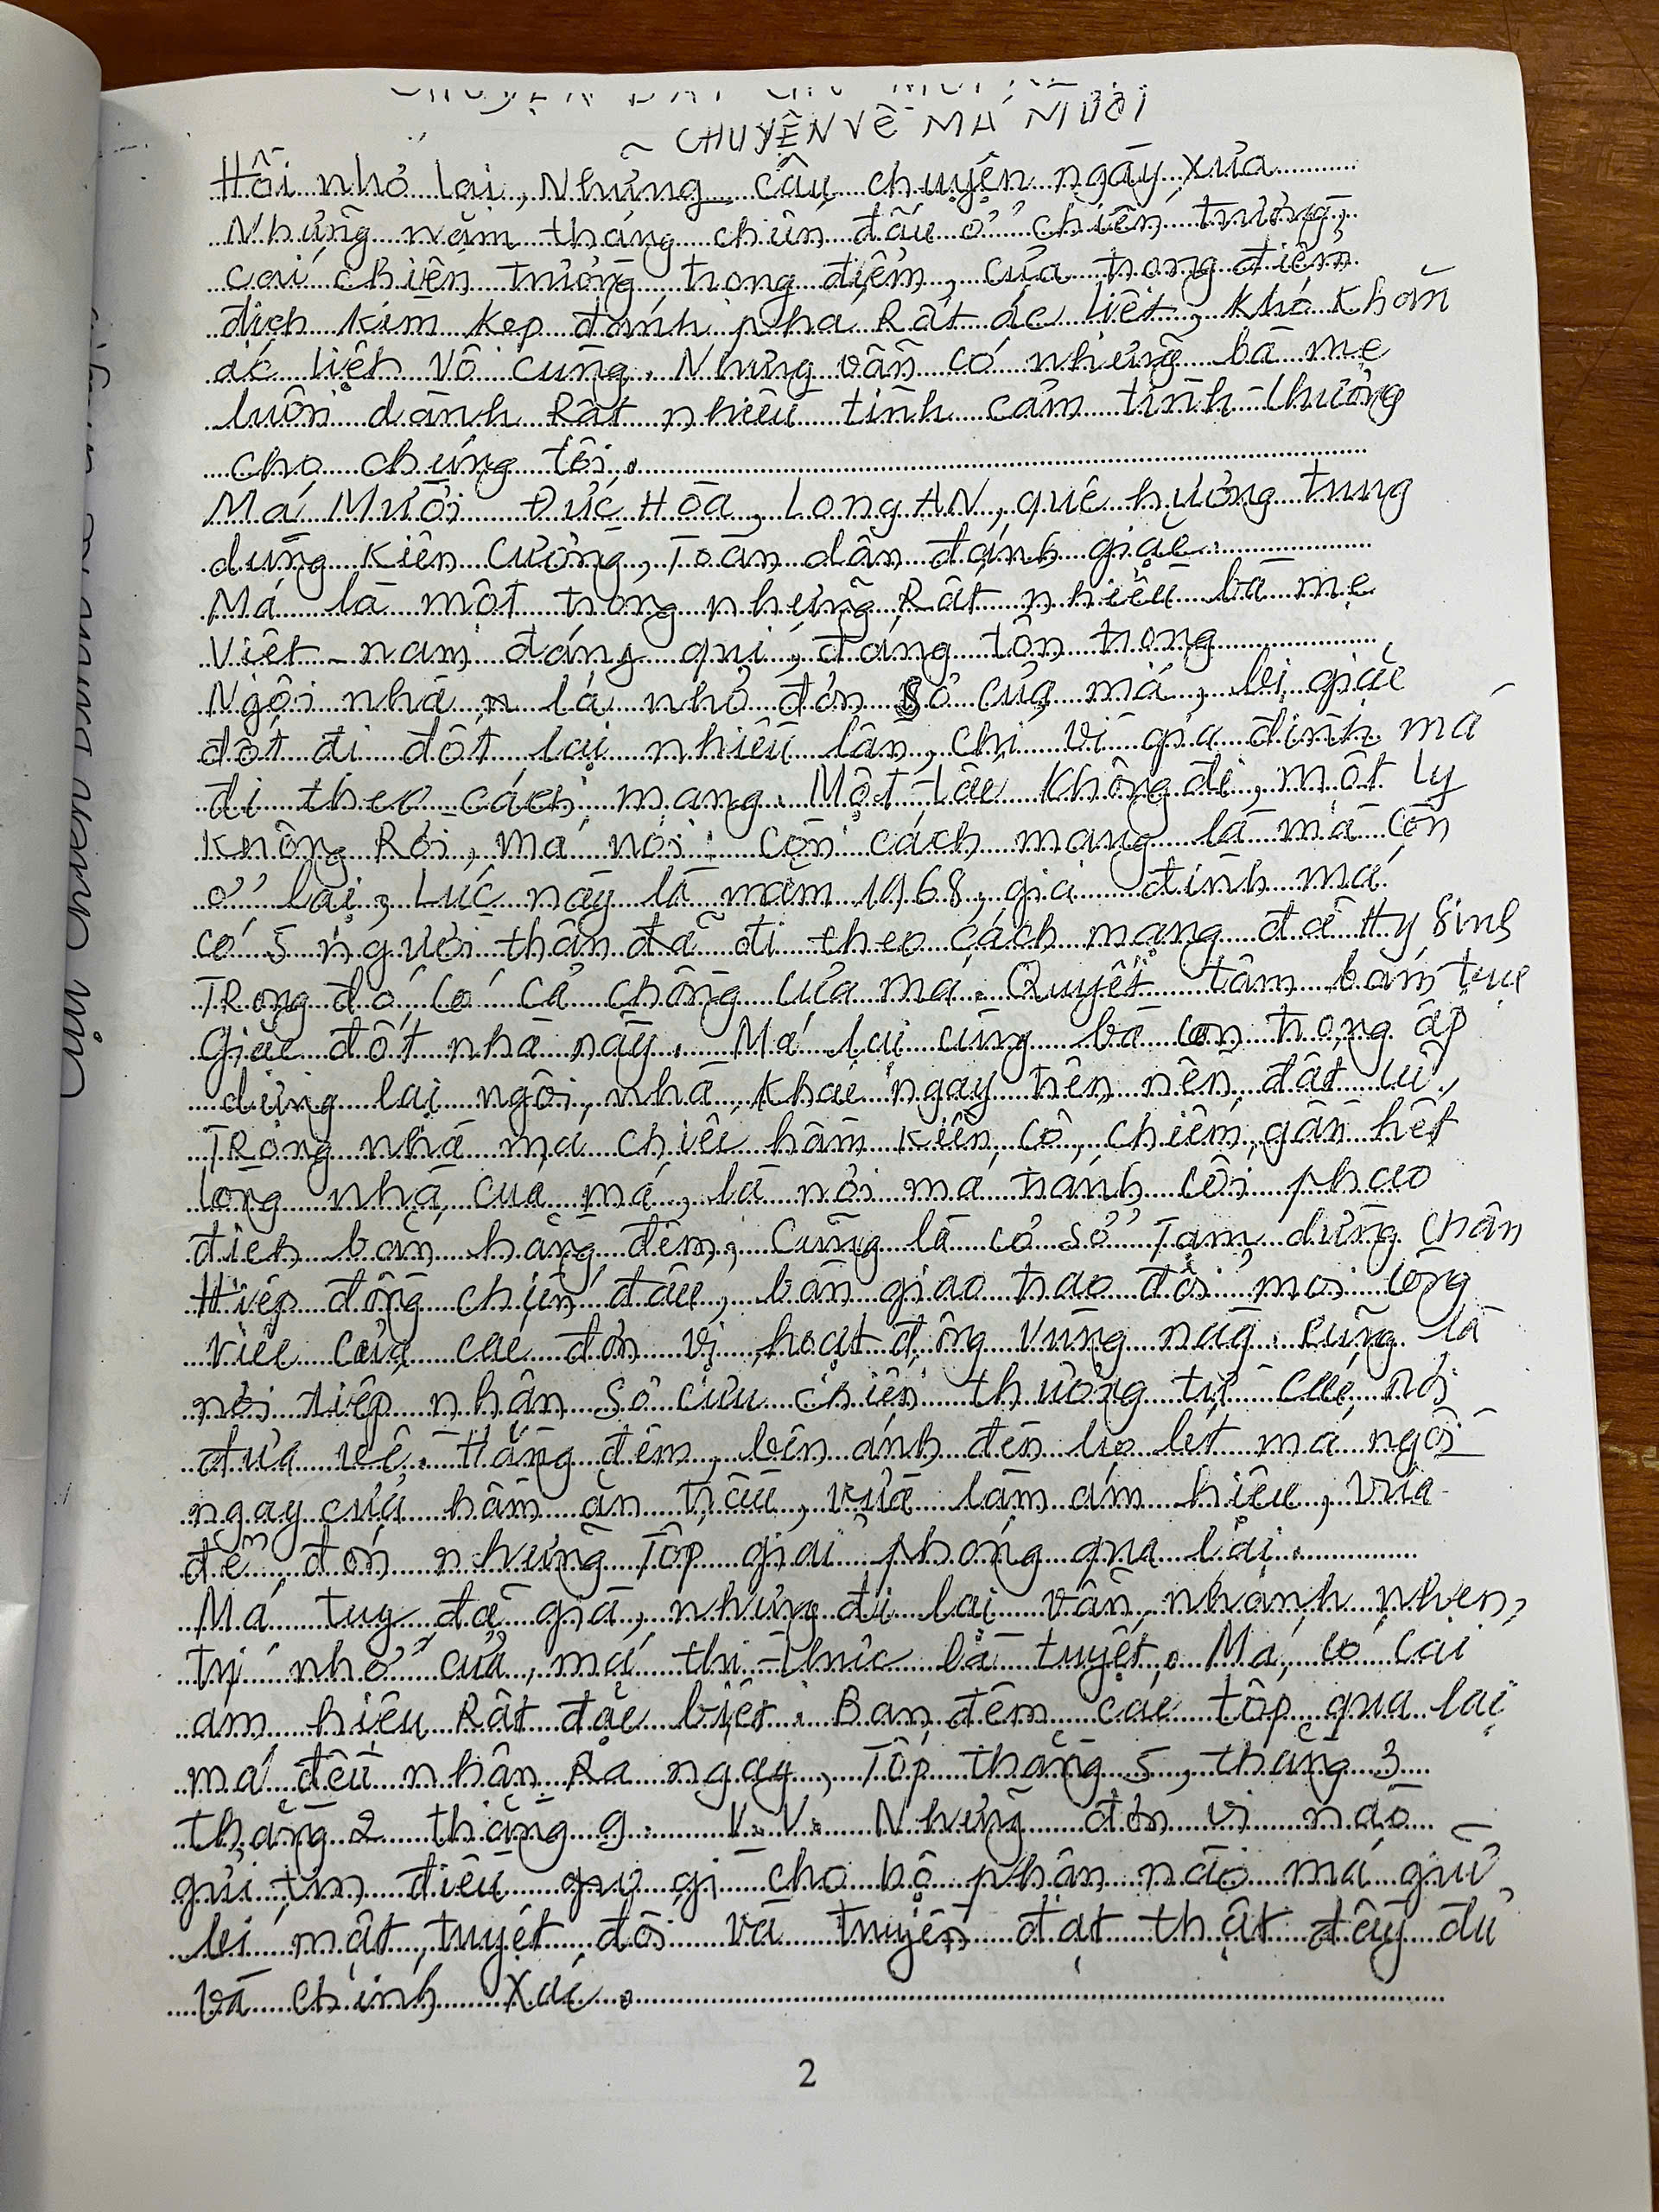 ~ CHUYỆN VỀ MÁ MƯỜI
Hồi nhỏ lại, Những câu chuyện ngày xưa
Những năm tháng chiến đấu ở chiến trường,
cái chiến trường trọng điểm, của trọng điểm
địch kìm kẹp đánh phá Rất ác liệt, khó khăn
ác liệt vô cùng. Nhưng vẫn có những bà mẹ
luôn dành Rất nhiều tình cảm tình thương
cho chúng tôi.
Má Mười ĐỨC HÒA, Long AN, quê hương trung
dũng kiên cường, Toàn dân đánh giặc.
Má là một trong những Rất nhiều bà mẹ
Việt-nam đáng quí, đáng tôn trọng
Ngôi nhà lá nhỏ đơn sơ của má, bị giặc
đốt đi đốt lại nhiều lần, chỉ vì gia đình má
đi theo cách mạng. Một tấc không đi, một ly
không Rời, má nói: còn cách mạng là má còn
ở lại, Lúc này là năm 1968, gia đình má
có 5 người thân đã đi theo cách mạng đã Hy sinh
TRong đó có cả chồng của má. Quyết tâm bám trụ
Giặc đốt nhà này. Má lại cùng bà con trong ấp
dựng lại ngôi nhà khác ngay trên nền đất cũ,
TRong nhà má chiếc hầm kiên cố, chiếm gần hết
lòng nhà của má, là nơi má tránh cối pháo
địch bắn hàng đêm, Cũng là cơ sở Tạm dừng chân
Hiệp đồng chiến đấu, bàn giao trao đổi mọi công
việc của các đơn vị hoạt động vùng này. cũng là
nơi tiếp nhận sơ cứu chiến thương từ các nơi
đưa về. Hằng đêm, bên ánh đèn má ngồi
ngay cửa hầm ăn trầu, vừa làm ám hiệu, vừa
để đón những Tốp giải phóng qua lại.
Má tuy đã già, nhưng đi lại vẫn nhanh nhẹn,
trí nhớ của má thì thực là tuyệt. Má có cái
ám hiệu Rất đặc biệt. Ban đêm các tốp qua lại
má đều nhận Ra ngay, Tốp thằng 5, thằng 3
thằng 2 thằng 9. V.V. Những đơn vị nào
gửi tin điều gì cho bộ phận nào má giữ
bí mật tuyệt đối và truyền đạt thật đầy đủ
và chính xác.
2